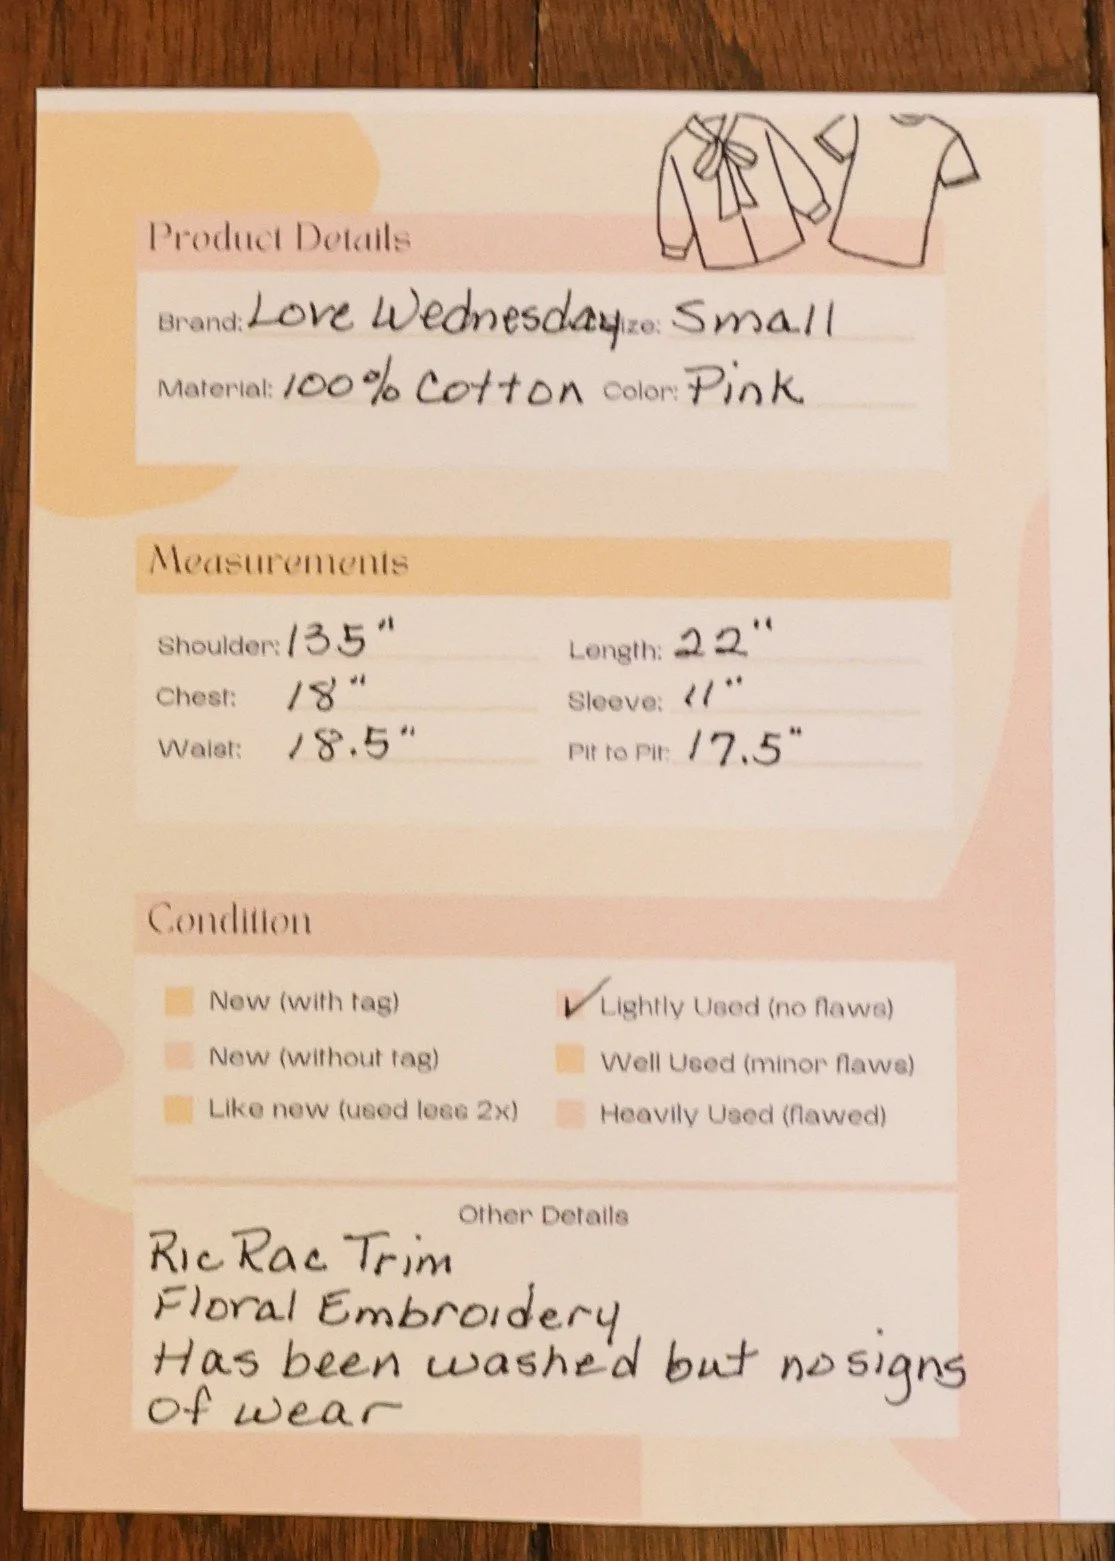 Product Details
Brand: Love Wednesday Size: Small
Material: 100% Cotton Color: Pink
Measurements
Shoulder: 135" Length: 22"
Chest: 18" Sleeve: 11"
Waist: 18.5" Pit to Pit: 17.5"
Condition
New (with tag) ✓ Lightly Used (no flaws)
New (without tag) Well Used (minor flaws)
Like new (used less 2x) Heavily Used (flawed)
Other Details
Ric Rac Trim
Floral Embroidery
Has been washed but no signs
of wear